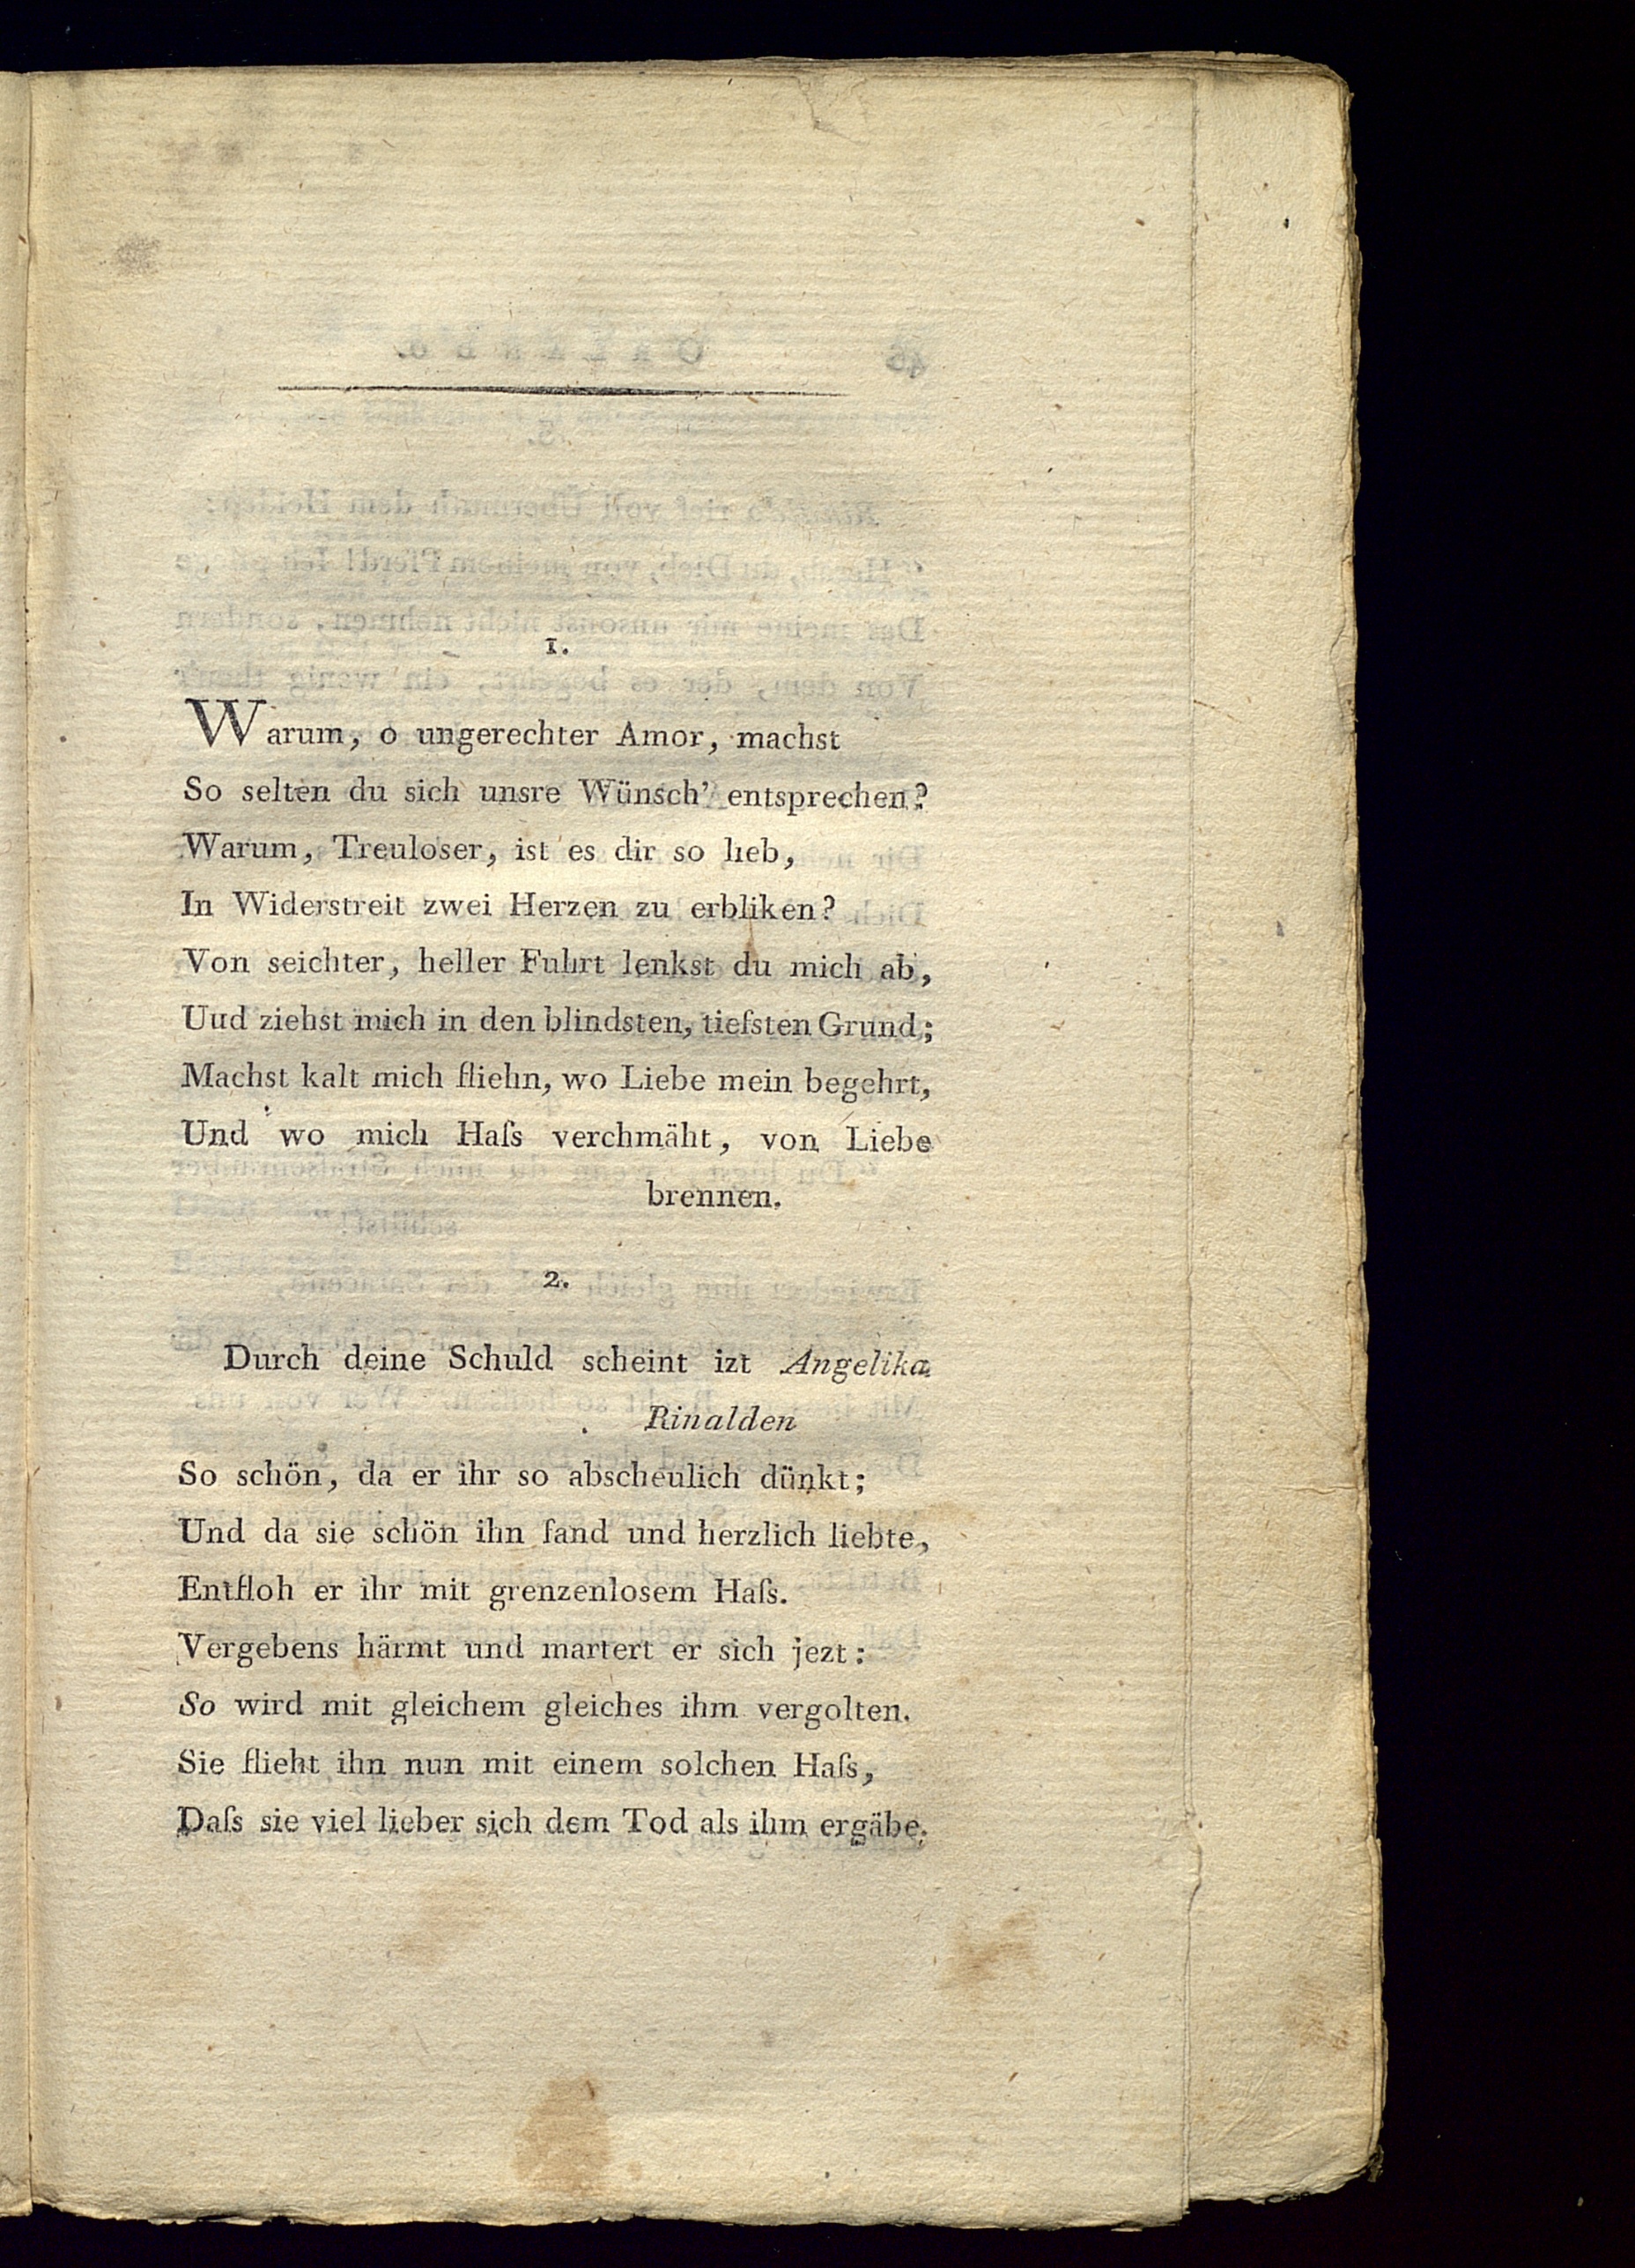 1.
Warum, o ungerechter Amor, machst
So selten du sich unsre Wünsch' entsprechen?
Warum, Treuloser, ist es dir so lieb,
In Widerstreit zwei Herzen zu erbliken?
Von seichter, heller Fuhrt lenkst du mich ab,
Uud ziehst mich in den blindsten, tiefsten Grund;
Machst kalt mich fliehn, wo Liebe mein begehrt,
Und wo mich Haſs verchmäht, von Liebe
brennen.
2.
Durch deine Schuld scheint izt Angelika
Rinalden
So schön, da er ihr so abscheulich dünkt;
Und da sie schön ihn fand und herzlich liebte,
Entfloh er ihr mit grenzenlosem Haſs.
Vergebens härmt und martert er sich jezt:
So wird mit gleichem gleiches ihm vergolten.
Sie flieht ihn nun mit einem solchen Haſs,
Daſs sie viel lieber sich dem Tod als ihm ergäbe.